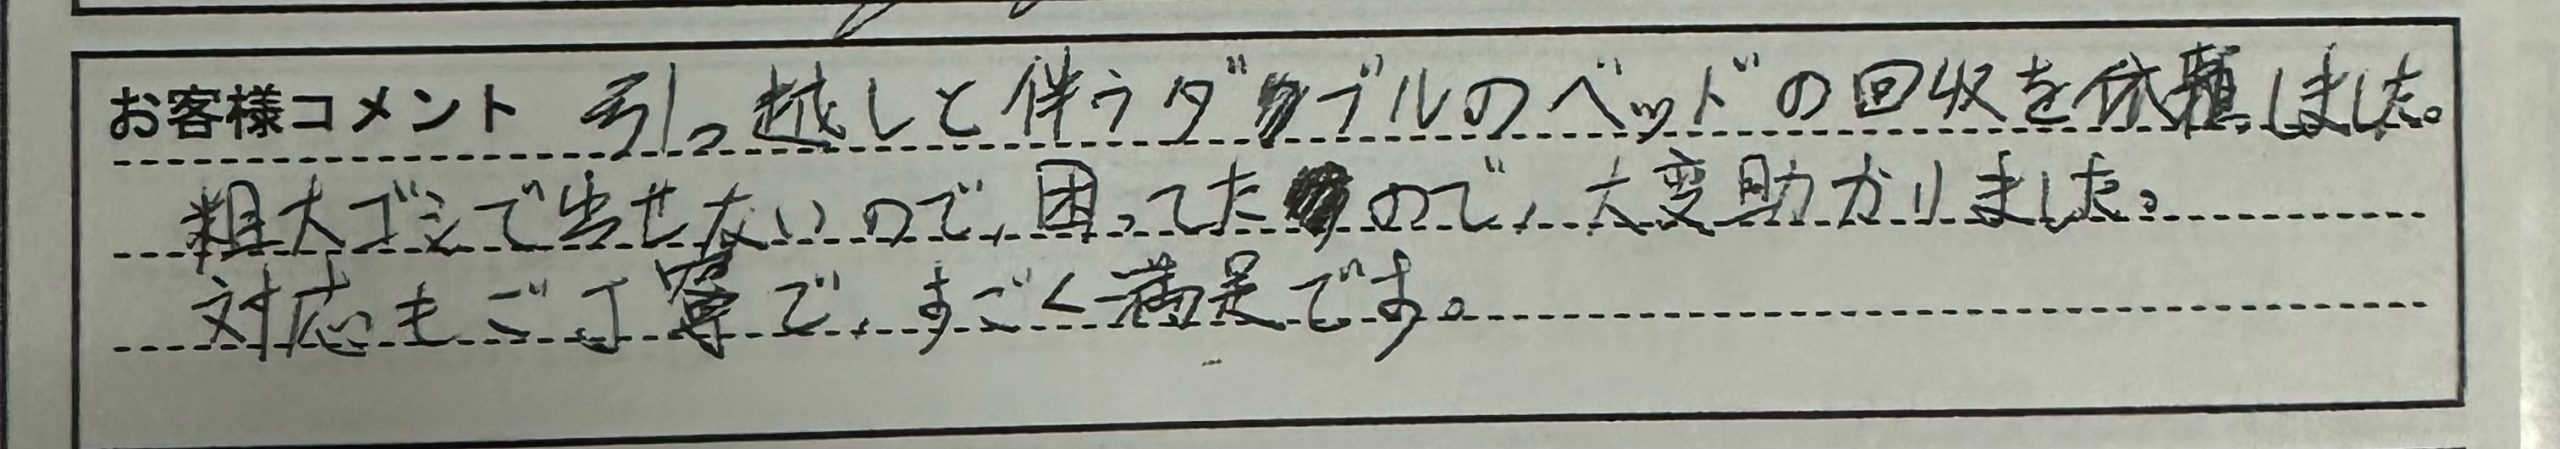 お客様コメント 引っ越しと伴うダブルのベッドの回収を依頼しました。
粗大ゴミで出せないので、困ってたので、大変助かりました。
対応もご丁寧で、すごく満足です。